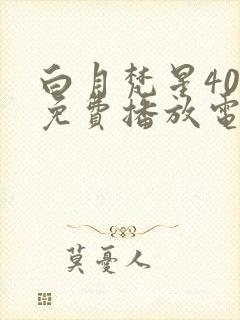 白月梵星40
免費播放電
莫憂人